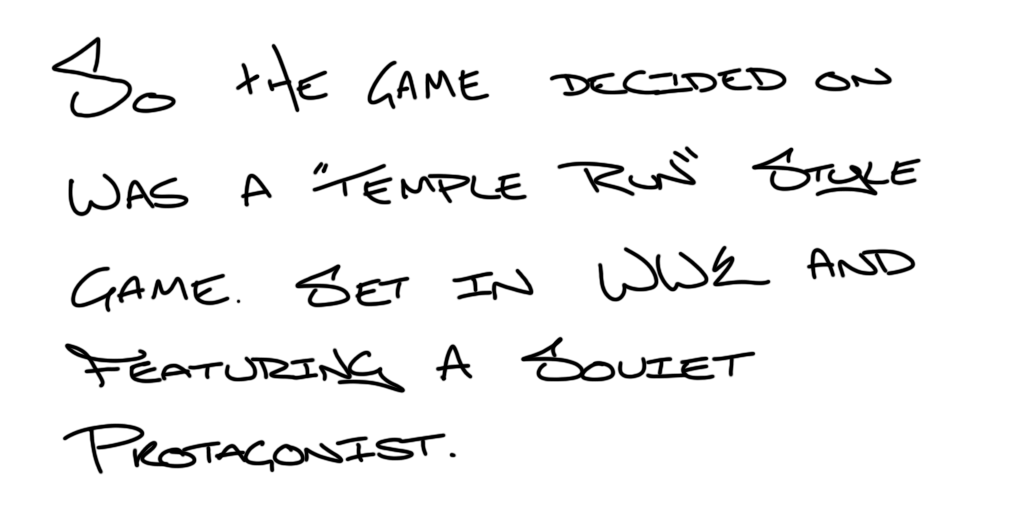 So the game decided on
was a "Temple Run" style
game. Set in WW2 and
featuring a Soviet
protagonist.